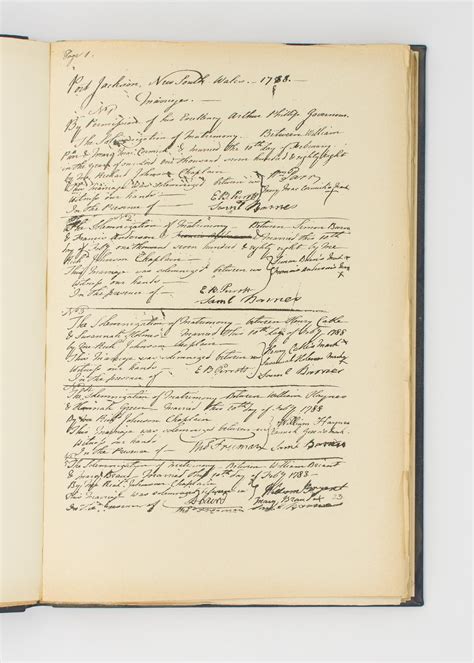 Page 1.
Port Jackson, New South Wales. 1788.
Marriages.
No 1
By Permission of his Excellency Arthur Phillip Governor.
The Solemnization of Matrimony Between William
Parr & Mary McCormick married this 10th day of
in the year of our Lord one thousand seven hundred & eighty eight
by me Richard Johnson Chaplain
This marriage was solemnized between us Wm Parr
Witness our hands Mary
In the Presence of E B Parrott
Saml Barnes
No 2
The Solemnization of Matrimony Between Simon Burn
& Francis Anderson married this 10th
day of one thousand seven hundred & eighty eight by me
Richd Johnson Chaplain
This Marriage was solemnized between us Simon Burn's Mark
Witness our hands
In the presence of E B Parrott
Saml Barnes
No 3
The Solemnization of Matrimony between Henry Cable
& Susannah Holmes Married this 10th day of Feby 1788
by me Richd Johnson Chaplain
This Marriage was solemnized between us Henry Mark
Witness our hands Susannah Holmes Mark
In the presence of E B Parrott Saml Barnes
The Solemnization of Matrimony between William Haynes
& Hannah Green Married this 10th day of Feby 1788
By me Richd Johnson Chaplain
This marriage was solemnized between us William Haynes
Witness our hands Hannah Green's Mark
In the Presence of Thos Freeman Saml Barnes
The Solemnization of Matrimony Between William Bryant
& Mary married this 10th day of Feby 1788
By me Richd Johnson Chaplain
This marriage was solemnized between us William Bryant
In the presence of Mary
Thos Freeman Saml Barnes